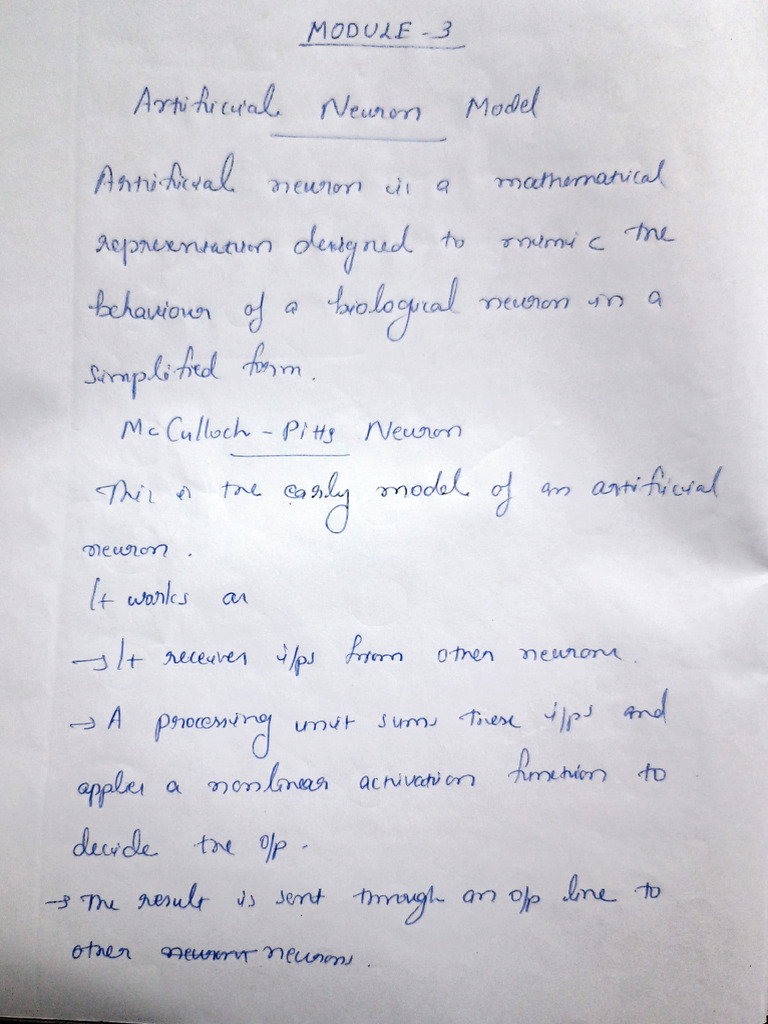 MODULE - 3
Artificial Neuron Model
Artificial neuron is a mathematical
representation designed to mimic the
behaviour of a biological neuron in a
simplified form.
McCulloch - Pitts Neuron
This is the early model of an artificial
neuron.
It works as
→ It receives i/ps from other neurons.
→ A processing unit sums these i/ps and
applies a nonlinear activation function to
decide the o/p.
→ The result is sent through an o/p line to
other neurons.